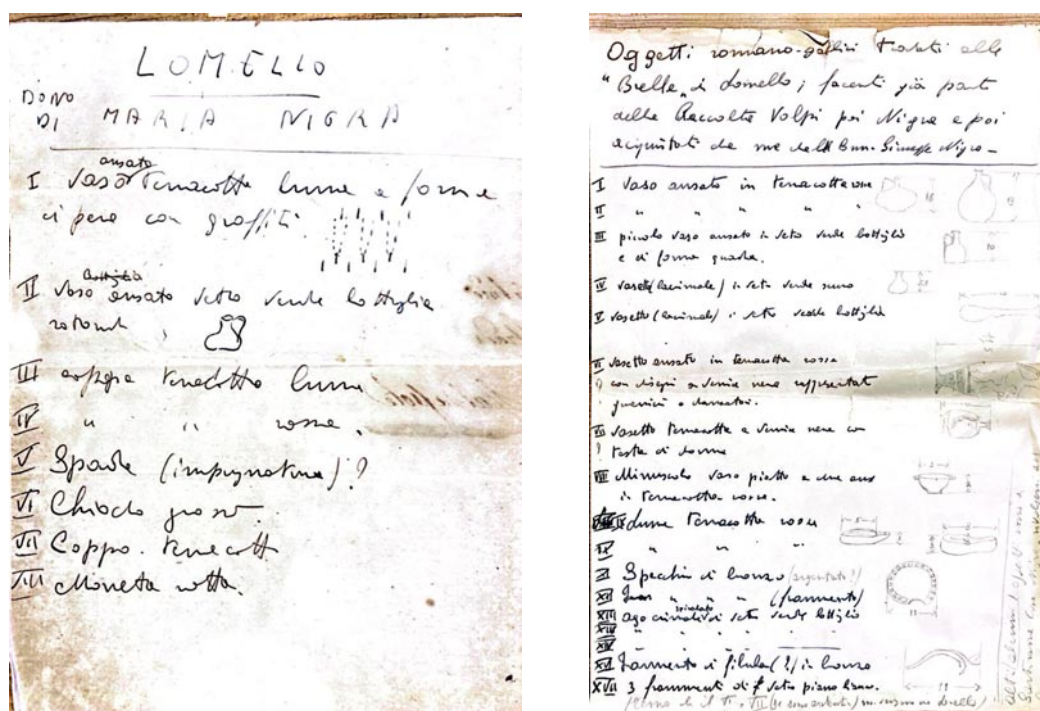 LOMELLO
DONO
DI MARIA NIGRA
I Vaso ansato terracotta lume a forma
di pera con graffiti.
II Vaso ansato vetro verde bottiglia
rotond
III coppa terracotta lume
IV " " rossa.
V Spada (impugnatura)?
VI Chiodo grosso.
VII Coppo. terracott
VIII Moneta rotta.
Oggetti romano-gallici trovati alle
"Brelle" di Lomello; facenti già parte
della Raccolta Volpi poi Nigra e poi
acquistati da me dall' Giuseppe Nigra -
I Vaso ansato in terracotta
II " " " "
III piccolo vaso ansato in vetro verde bottiglia
e di forma quadra.
IV vasetto (lacrimale) in vetro verde
V vasetto (lacrimale) in vetro verde bottiglia
VI vasetto ansato in terracotta rossa
? con disegni a vernice nera rappresentanti
guerrieri o danzatori.
VII vasetto terracotta a vernice nera con
? testa di donna
VIII Minuscolo vaso piatto a due anse
in terracotta rossa.
IX Lume terracotta rossa
X " " "
XI Specchio di bronzo (argentato?)
XII " " " (frammento)
XIII ago crinale spiralato di vetro verde bottiglia
XIV " " " " "
XV
XVI Frammento di fibula (?) in bronzo
XVII 3 frammenti di vetro piano bianco.